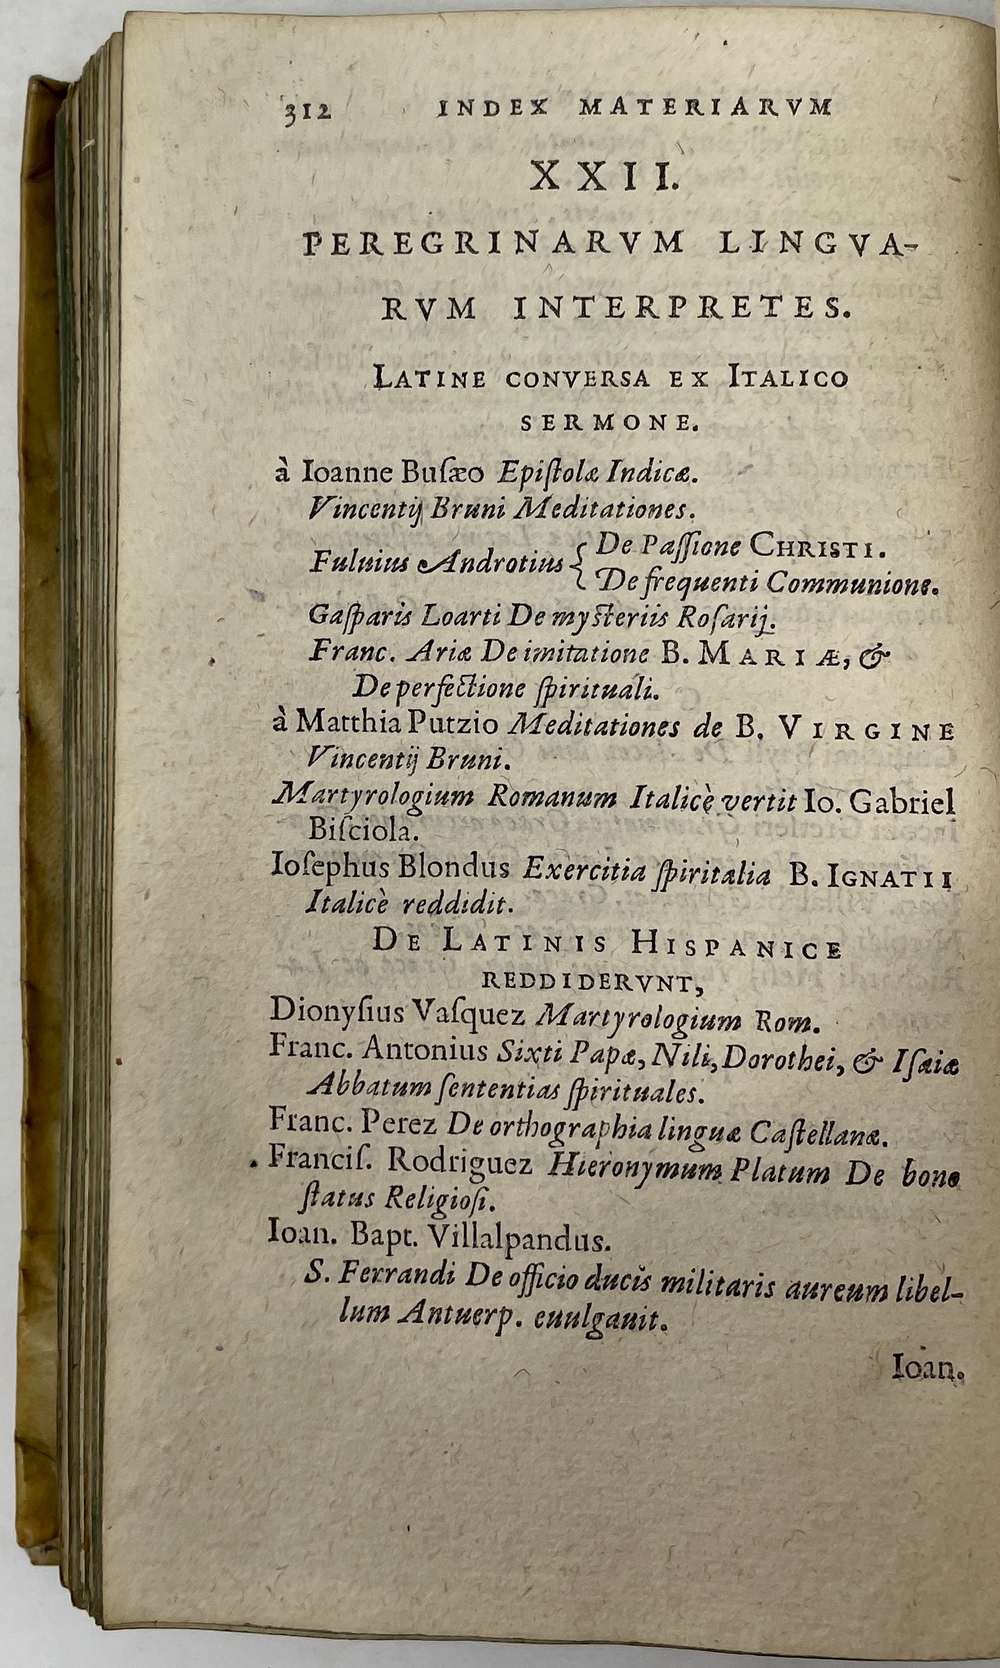 312 INDEX MATERIARVM
XXII.
PEREGRINARVM LINGVA-
RVM INTERPRETES.
LATINE CONVERSA EX ITALICO
SERMONE.
à Ioanne Buſæo Epiſtolæ Indicæ.
Vincentij Bruni Meditationes.
Fuluius Androtius { De Paſſione CHRISTI.
De frequenti Communione.
Gaſparis Loarti De myſteriis Roſarij.
Franc. Ariæ De imitatione B. MARIÆ, &
De perfectione ſpirituali.
à Matthia Putzio Meditationes de B. VIRGINE
Vincentij Bruni.
Martyrologium Romanum Italicè vertit Io. Gabriel
Biſciola.
Ioſephus Blondus Exercitia ſpiritalia B. IGNATII
Italicè reddidit.
DE LATINIS HISPANICE
REDDIDERVNT,
Dionyſius Vaſquez Martyrologium Rom.
Franc. Antonius Sixti Papæ, Nili, Dorothei, & Iſaiæ
Abbatum ſententias ſpirituales.
Franc. Perez De orthographia linguæ Caſtellanæ.
Franciſ. Rodriguez Hieronymum Platum De bono
ſtatus Religioſi.
Ioan. Bapt. Villalpandus.
S. Ferrandi De officio ducis militaris aureum libel-
lum Antuerp. euulgauit.
Ioan.